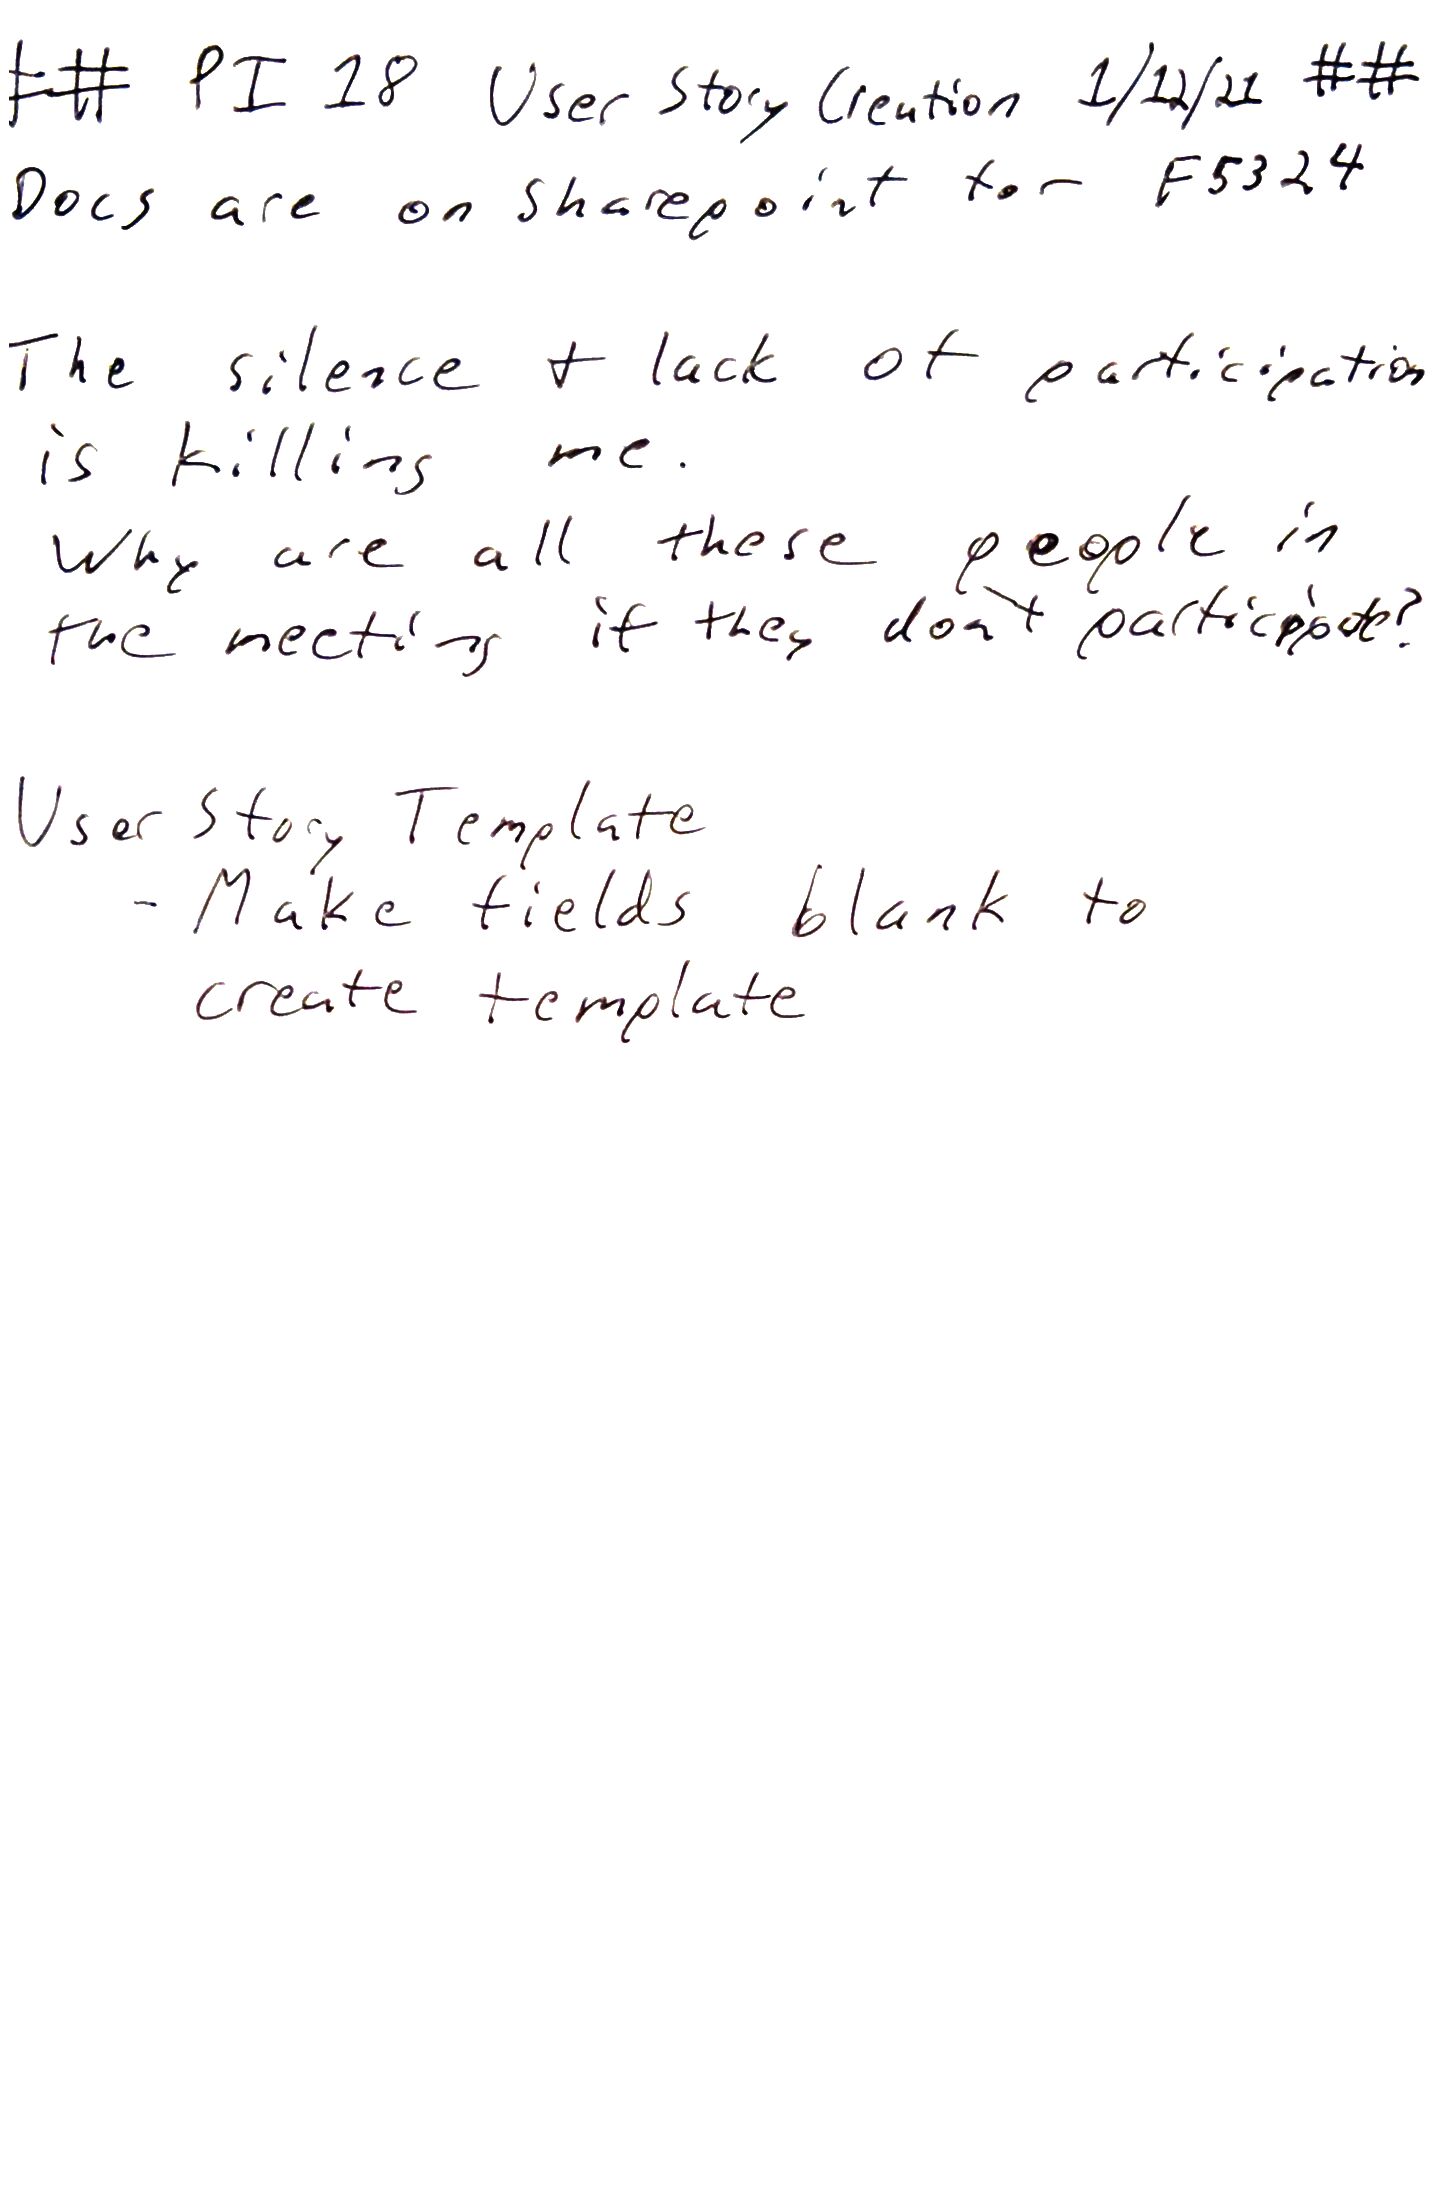 ## PI 18 User Story Creation 1/12/21 ##
Docs are on Sharepoint for F5324
The silence + lack of participation
is killing me.
Why are all these people in
the meeting if they don't participate?
User Story Template
- Make fields blank to
create template